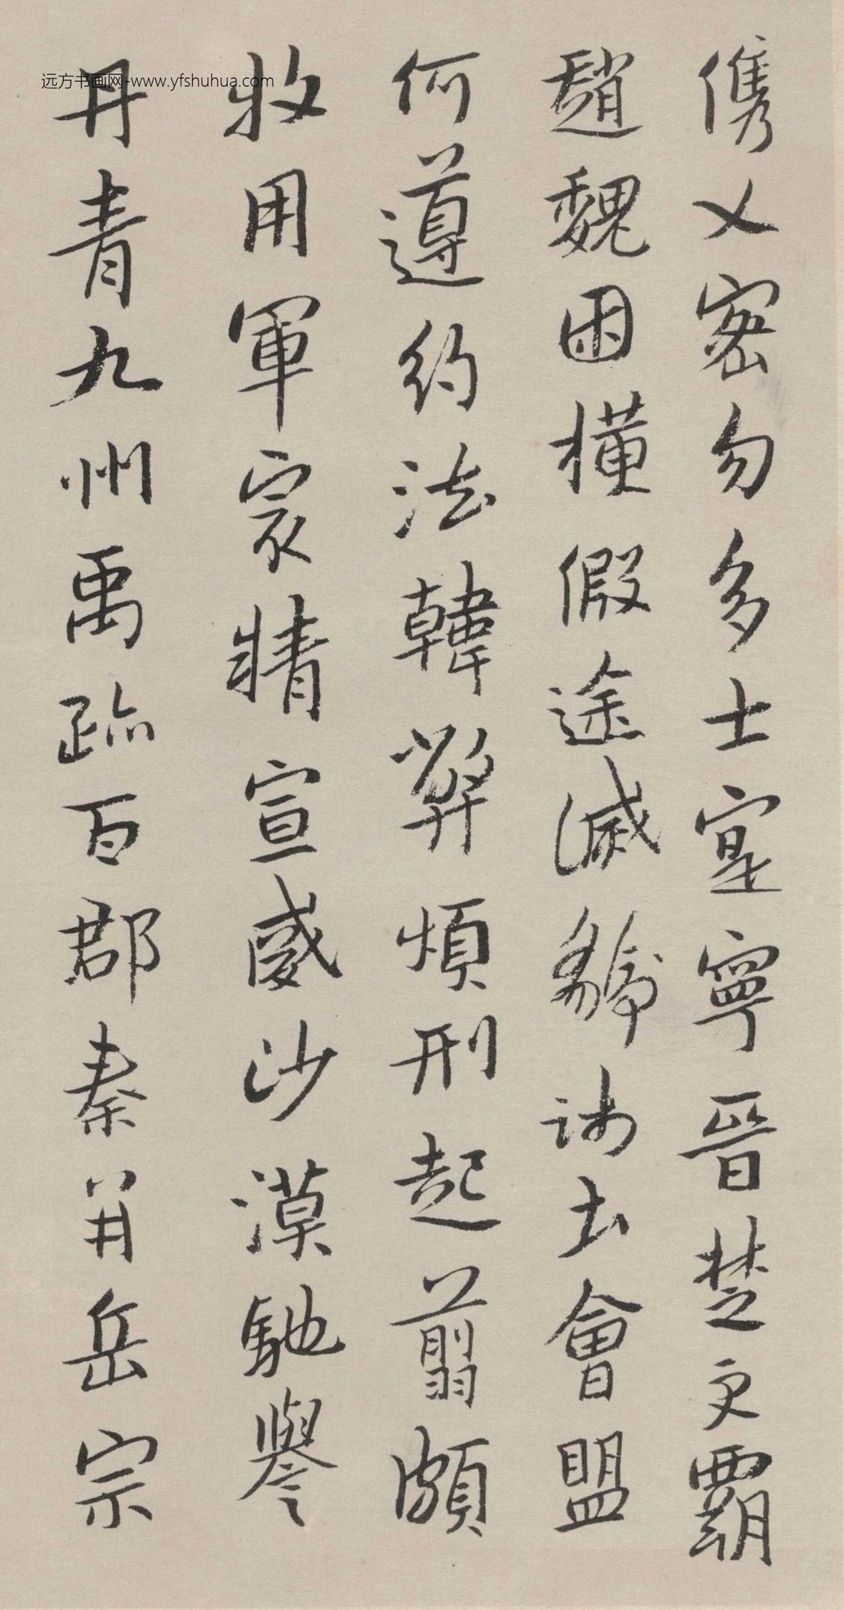 远方书画网-www.yfshuhua.com
儁乂密勿多士寔寧晉楚更霸
趙魏困橫假途滅虢踐土會盟
何遵約法韓弊煩刑起翦頗
牧用軍最精宣威沙漠馳譽
丹青九州禹跡百郡秦并岳宗